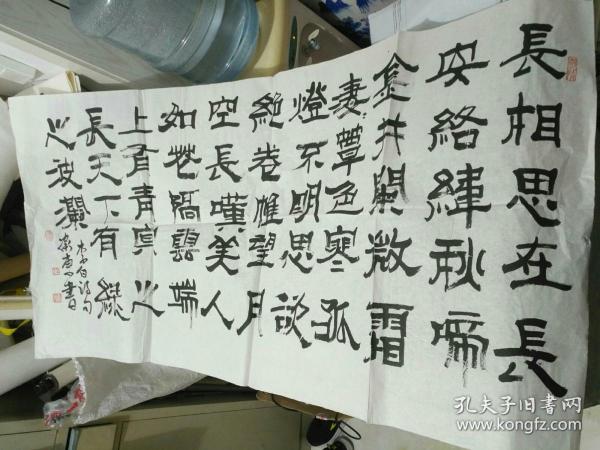 長相思在長
安絡緯秋啼
金井闌微霜
凄簟色寒孤
燈不明思欲
絕卷帷望月
空長嘆美人
如花隔雲端
上有青冥之
長天下有綠
之波瀾
李白詩句
孔夫子旧书网
www.kongfz.com